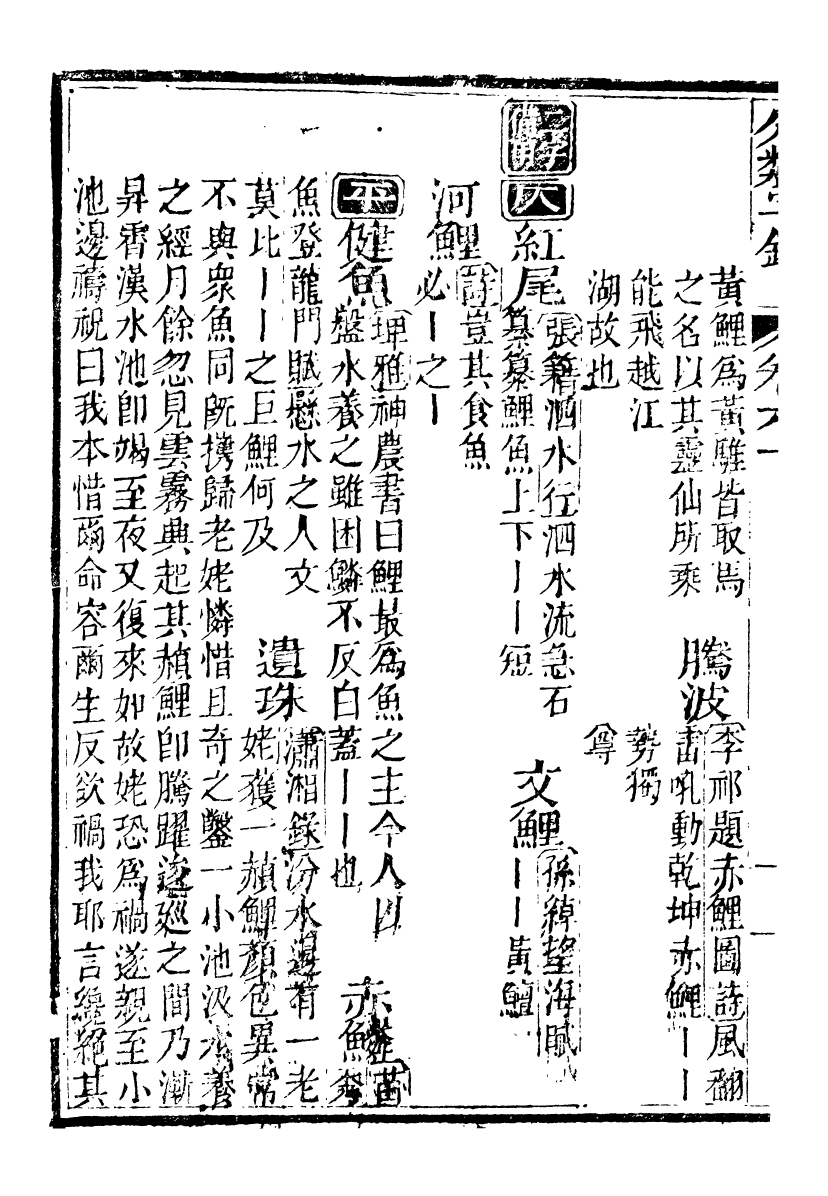 分類字錦 卷六十一
黃鯉為黃騅皆取馬
之名以其靈仙所乘
能飛越江
湖故也
騰波
李祁題赤鯉圖詩風翻
雷吼動乾坤赤鯉丨丨
勢獨
尊
二字備用
仄
紅尾
張籍泗水行泗水流急石
纂纂鯉魚上下丨丨短
文鯉
孫綽望海賦
丨丨黃鱣
河鯉
詩豈其食魚
必丨之丨
平
健魚
埤雅神農書曰鯉最為魚之主今人以
盤水養之雖困鱗不反白蓋丨丨也
赤
苗秀
魚登龍門賦懸水之人文
莫比丨丨之巨鯉何及
遺珠
瀟湘錄汾水邊有一老
姥獲一赬鯉顏色異常
不與衆魚同旣携歸老姥憐惜且奇之鑿一小池汲水養
之經月餘忽見雲霧興起其赬鯉即騰躍逡廵之間乃漸
昇霄漢水池即竭至夜又復來如故姥恐為禍遂親至小
池邊禱祝曰我本惜爾命容爾生反欲禍我耶言纔絕其